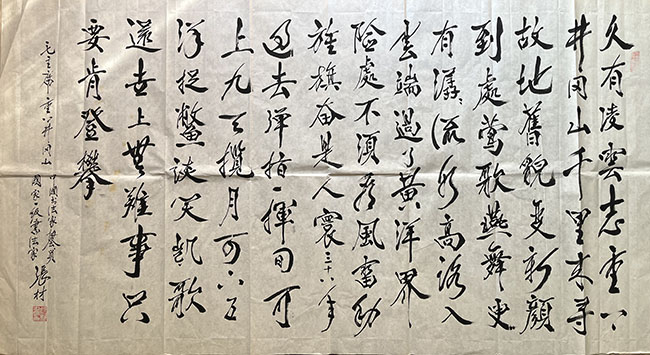 久有凌雲志重上
井冈山千里来尋
故地舊貌变新顔
到處鶯歌燕舞更
有潺々流水高路入
雲端過了黄洋界
险處不須看風雷動
旌旗奋是人寰三十八年
过去弹指一揮间可
上九天攬月可下五
洋捉鱉谈笑凱歌
還世上無難事只
要肯登攀
毛主席重上井冈山
中國书法家
國家一级書法家 張材